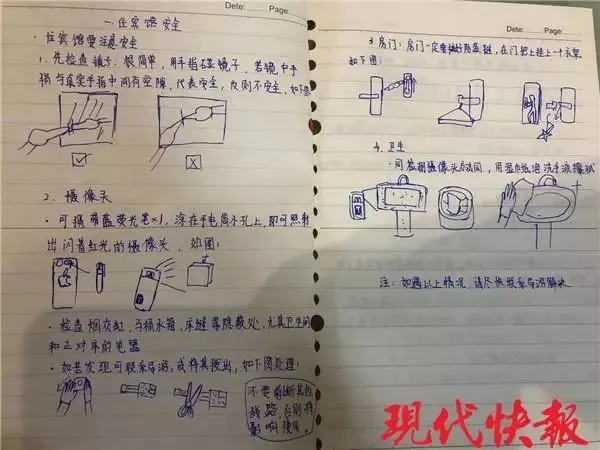 Date:   Page:
一.住宾馆安全
· 住宾馆要注意安全
1. 先检查镜子: 很简单, 用手指碰镜子, 若镜中手
指与真实手指中间有空隙, 代表安全, 反则不安全, 如下图
2. 摄像头
· 可摘 萤光笔×1, 涂在手电筒小孔上, 即可照射
出闪着红光的摄像头, 如图:
· 检查烟灰缸, 马桶水箱, 床缝等隐蔽处, 尤其卫生间
和正对床的电器
· 如若发现可联系导游, 或将其拔出, 如下图处理:
不要剪断其他
线路, 否则将
影响使用.
Date:   Page:
3. 房门: 房门一定要 在门把上挂上一个衣架
如下图:
4. 卫生
· 同检测摄像头方法同, 用湿巾纸沾洗手液擦拭
注: 如遇以上情况, 请尽快联系导游解决
现代快報